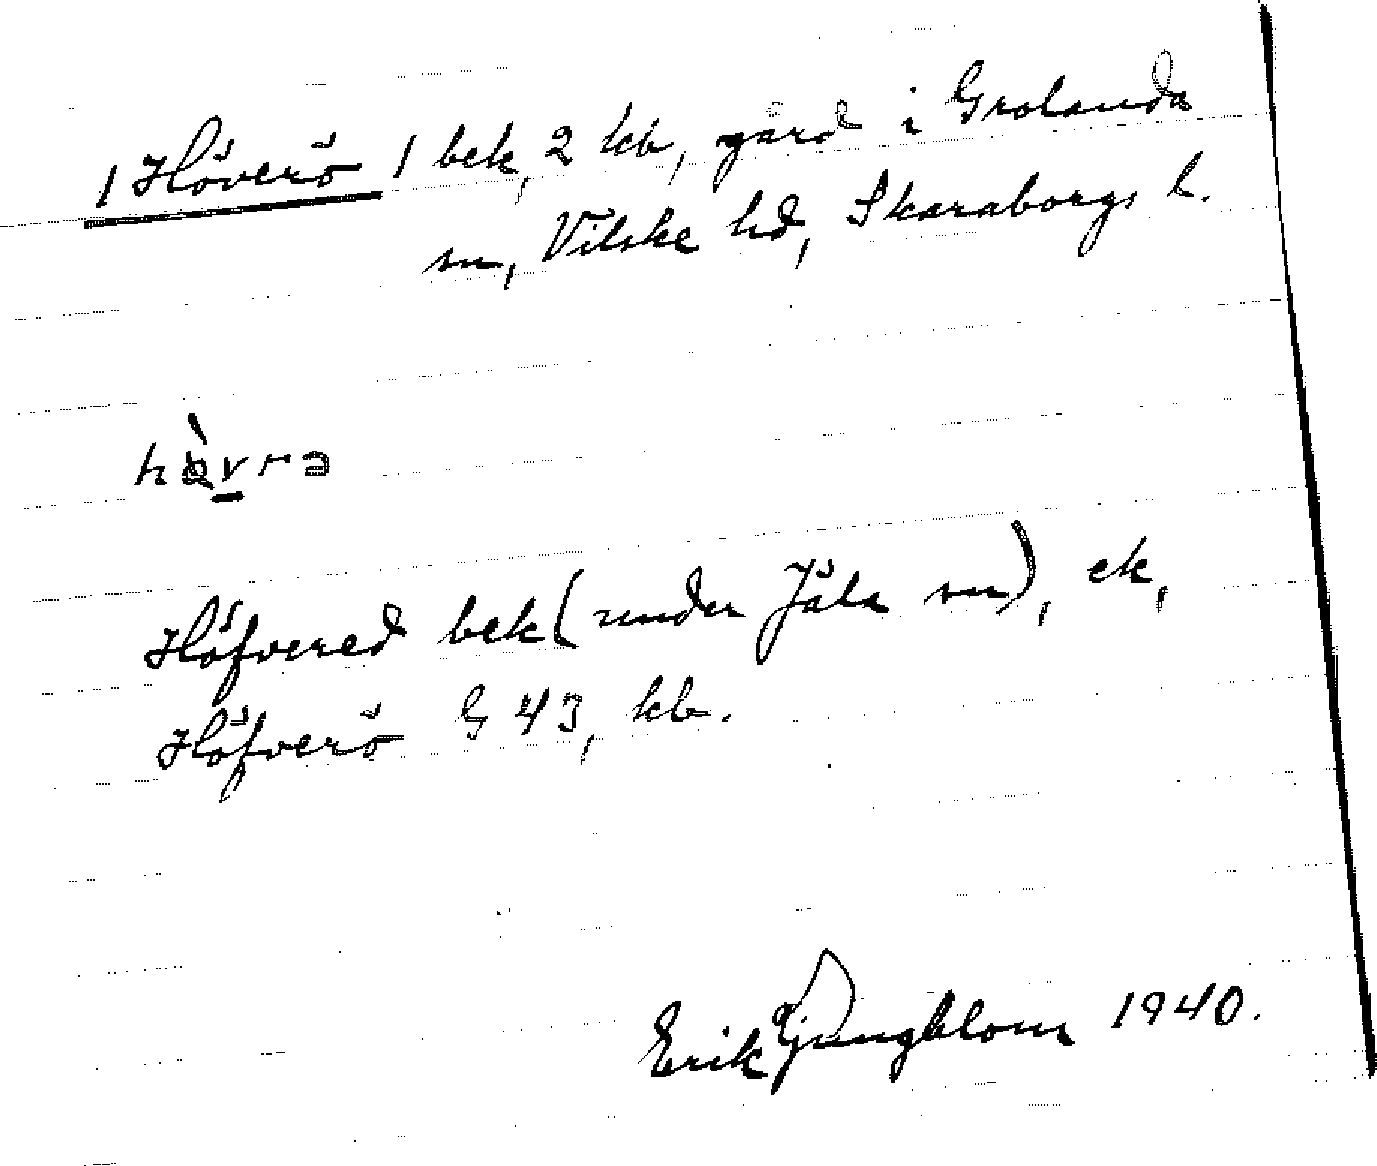 1 Höverö 1 bek, 2 kb, gård i Grolanda
sn, Vilske hd, Skaraborgs l.
Höfvered bek (under Jäla sn), ek,
Höfverö G 43, kb.
Erik Ljungblom 1940.